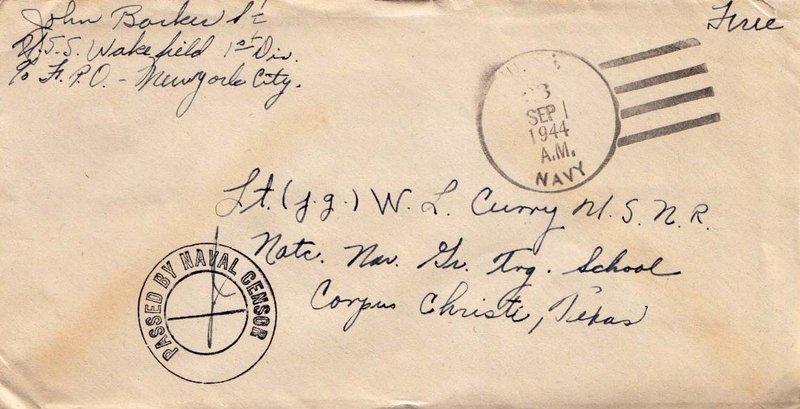 John Barker S1c
U.S.S. Wakefield 1st Div.
c/o F.P.O. - Newyork City.
Free
SEP 1
1944
A.M.
NAVY
Lt. (j.g.) W. L. Curry U.S.N.R.
Natc. Nav. Gr. Trg. School
Corpus Christi, Texas
PASSED BY NAVAL CENSOR